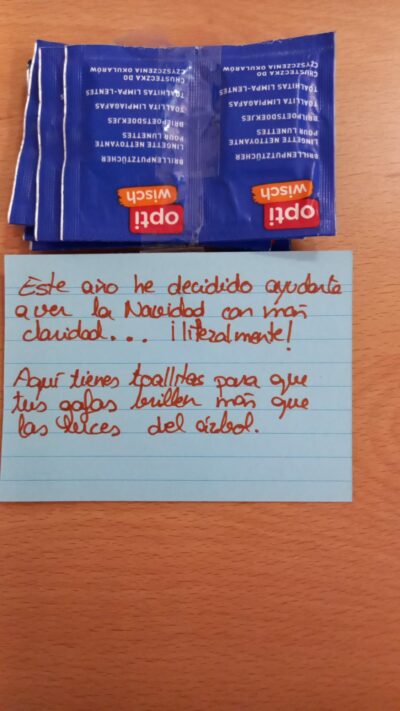 BRILLENPUTZTÜCHER
LINGETTE NETTOYANTE
POUR LUNETTES
BRILPOETSDOEKJES
TOALLITA LIMPIAGAFAS
TOALHITAS LIMPA-LENTES
CHUSTECZKA DO
CZYSZCZENIA OKULARÓW
opti
wisch
BRILLENPUTZTÜCHER
LINGETTE NETTOYANTE
POUR LUNETTES
BRILPOETSDOEKJES
TOALLITA LIMPIAGAFAS
TOALHITAS LIMPA-LENTES
CHUSTECZKA DO
CZYSZCZENIA OKULARÓW
opti
wisch
Este año he decidido ayudarte
a ver la Navidad con más
claridad... ¡literalmente!
Aquí tienes toallitas para que
tus gafas brillen más que
las luces del árbol.